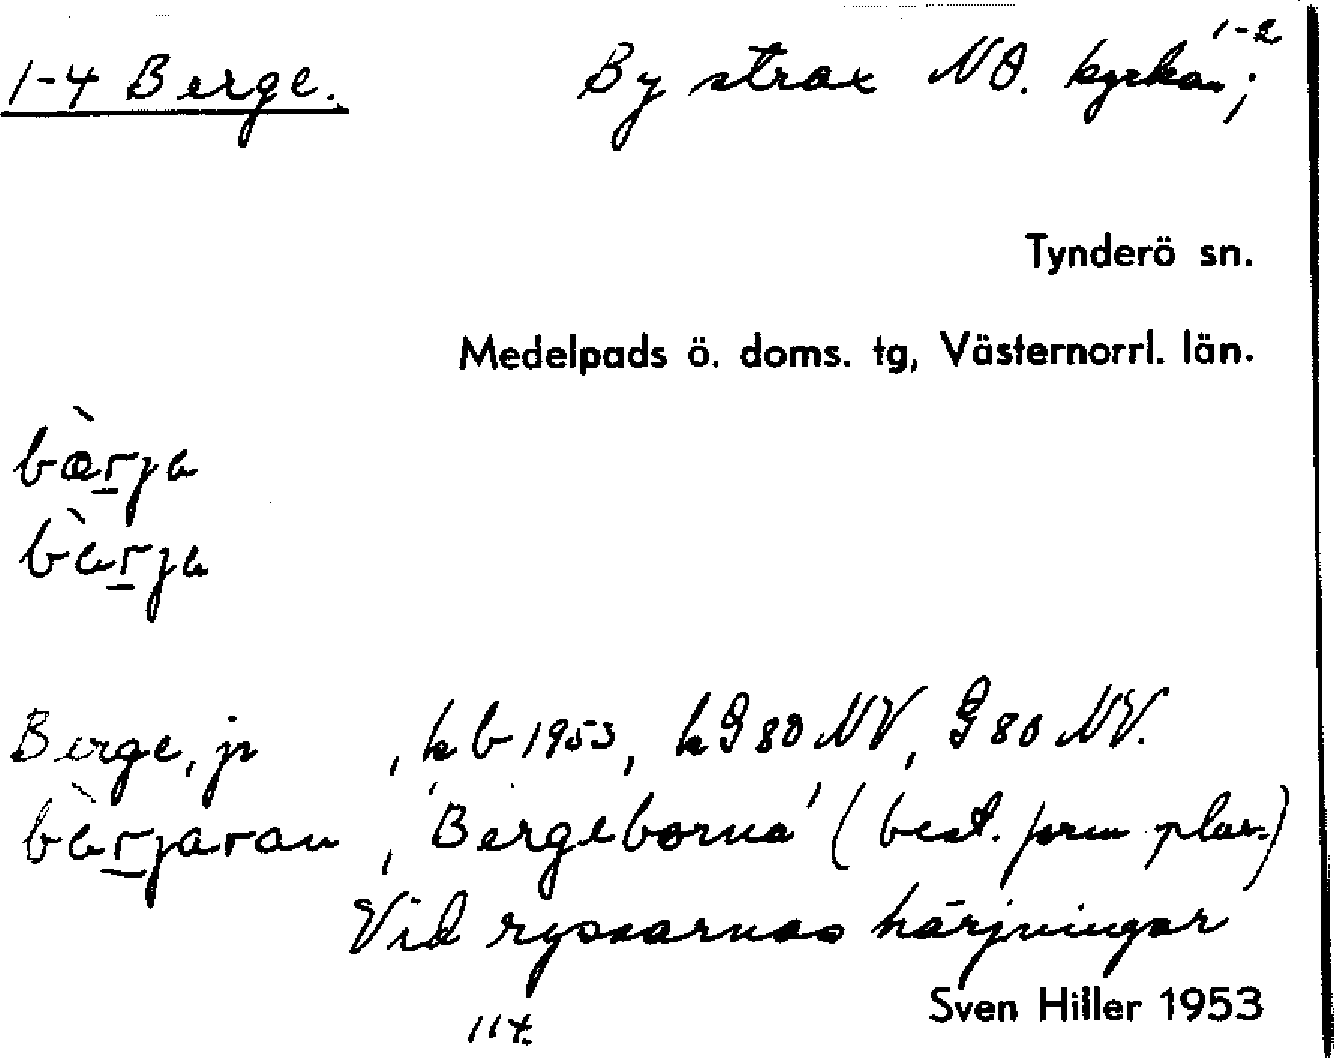 1-4 Berge. By strax NO. kyrkan; 1-2
Tynderö sn.
Medelpads ö. doms. tg, Västernorrl. län.
bæ̀r̲ja
bàr̲ja
Berge, jr , kb 1953, hG 80 NV, G 80 NV.
bàr̲jaran , 'Bergeborna' (best. form plur.)
Vid ryssarnas härjningar
Sven Hiller 1953